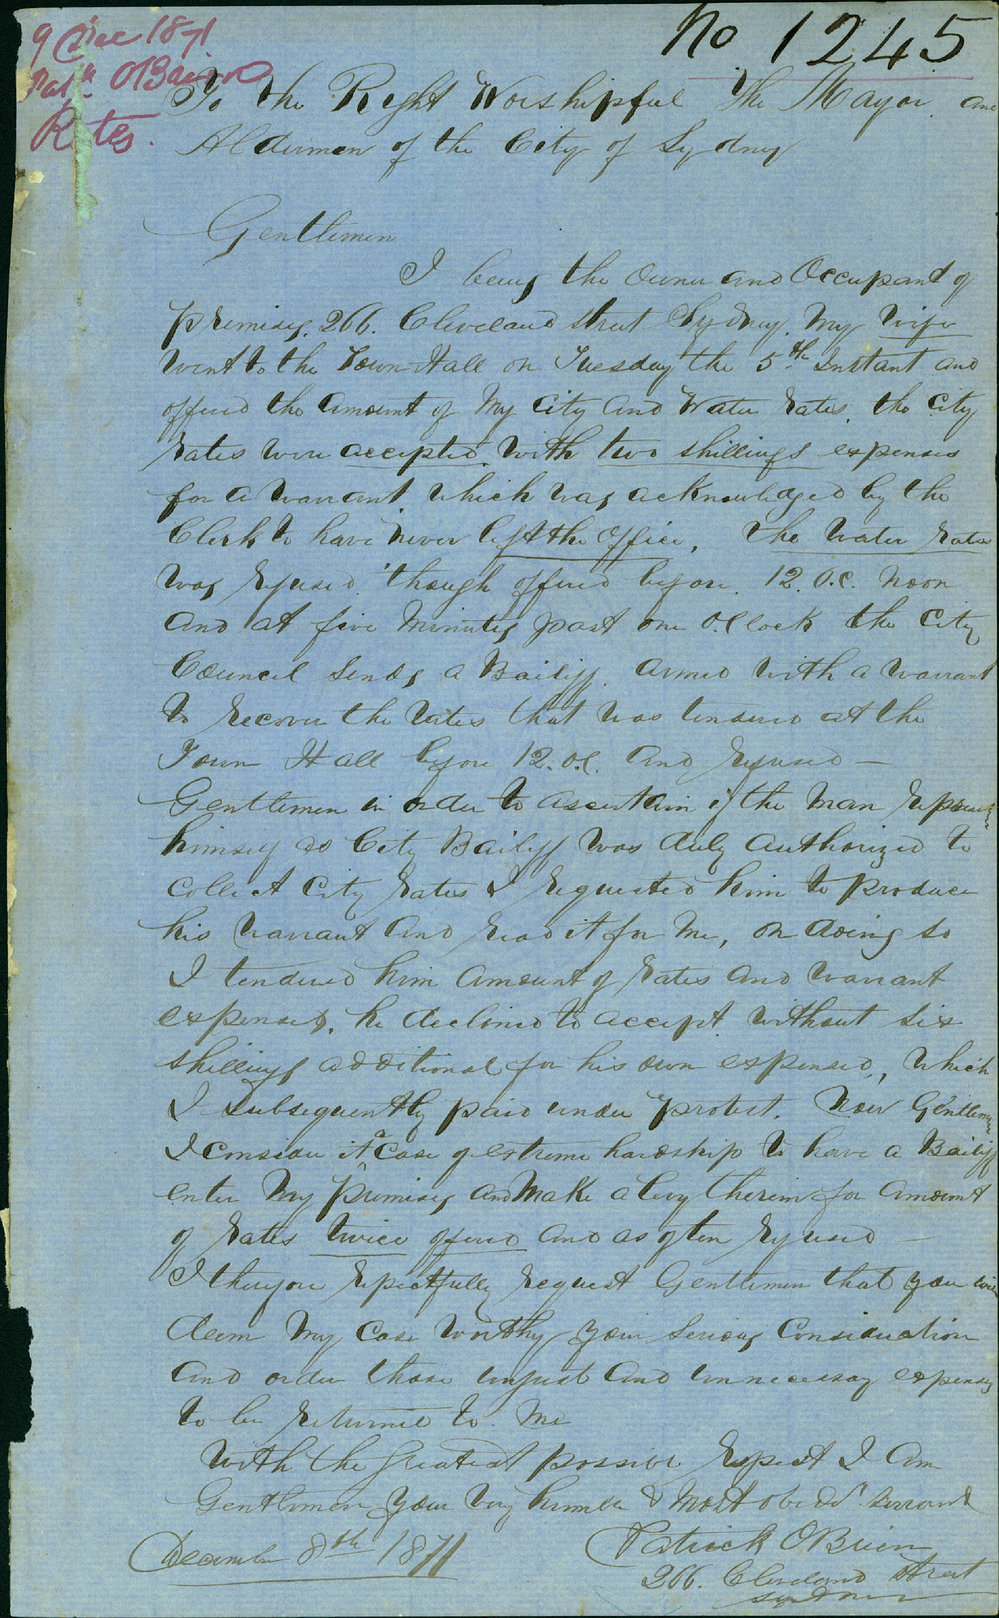 9 Dec 1871
Patk. OBrien
Rates.
No 1245
To the Right Worshipful The Mayor and
Aldermen of the City of Sydney
Gentlemen
I being the Owner and Occupant of
premises, 266. Cleveland Street Sydney, My Wife
Went to the Town Hall on Tuesday the 5th Instant and
offered the Amount of My City and Water Rates, the City
Rates were accepted, with two shillings expenses
for a Warrant which was acknowledged by the
Clerk to have never left the Office, the Water Rates
was refused though offered before 12. O.C. Noon
and at five Minutes past one O.Clock the City
Council Sends a Bailiff armed with a Warrant
to recover the Rates that was tendered at the
Town Hall before 12. O.C. and refused —
Gentlemen in order to ascertain if the Man
himself as City Bailiff was duly Authorized to
Collect City Rates I requested him to produce
his Warrant and read it for Me, on doing so
I tendered him Amount of Rates and Warrant
expenses, he declined to accept without six
shillings additional for his own expenses, which
I Subsequently paid under protest. Now Gentlemen
I consider it a Case of extreme hardship to have a Bailiff
enter My premises and Make a levy therein for Amount
of Rates twice offered and as often refused —
I therefore respectfully request Gentlemen that you will
deem My Case worthy your Serious Consideration
and order those unjust and unnecessay expenses
to be returned to Me
With the Greatest possible respect I am
Gentlemen your very humble & Most obedt. Servant
Patrick OBrien
December 8th 1871
266. Cleveland Street
Sydney